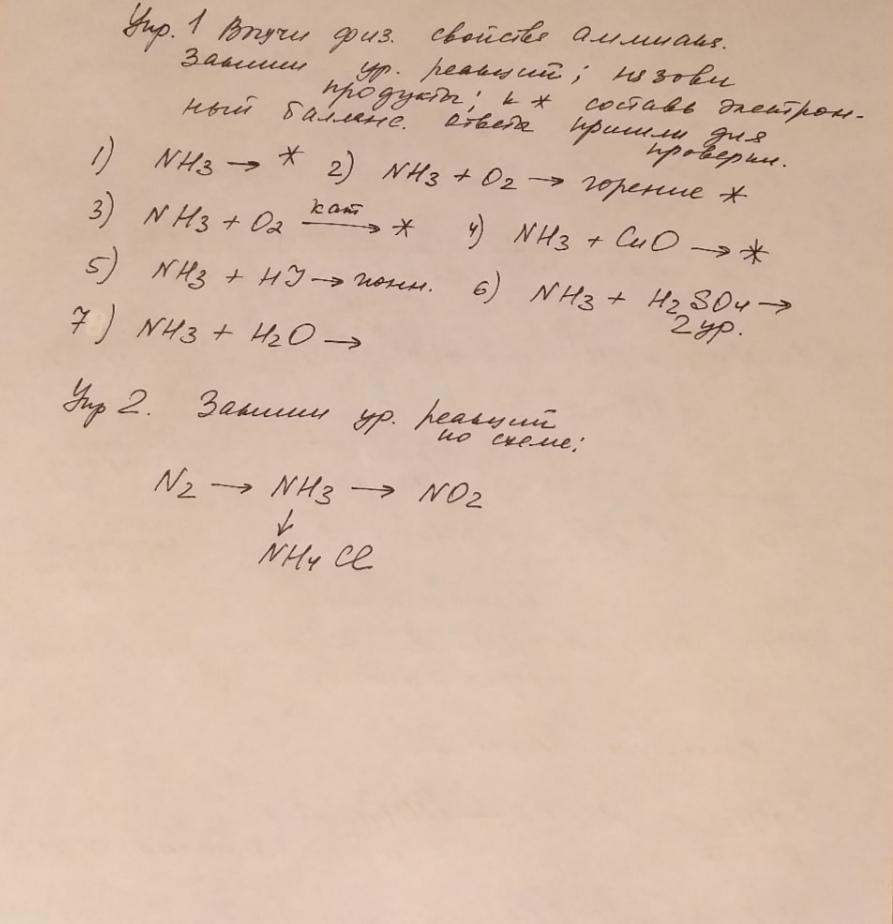 Упр. 1 Выучи физ. свойства аммиака.
Запиши ур. реакций; назови
продукты; к * составь электрон-
ный баланс. Ответы пришли для
проверки.
1) NH3 → * 2) NH3 + O2 → горение *
3) NH3 + O2 кат → * 4) NH3 + CuO → *
5) NH3 + HJ → ионн. 6) NH3 + H2SO4 →
2 ур.
7) NH3 + H2O →
Упр 2. Запиши ур. реакций
по схеме:
N2 → NH3 → NO2
↓
NH4Cl